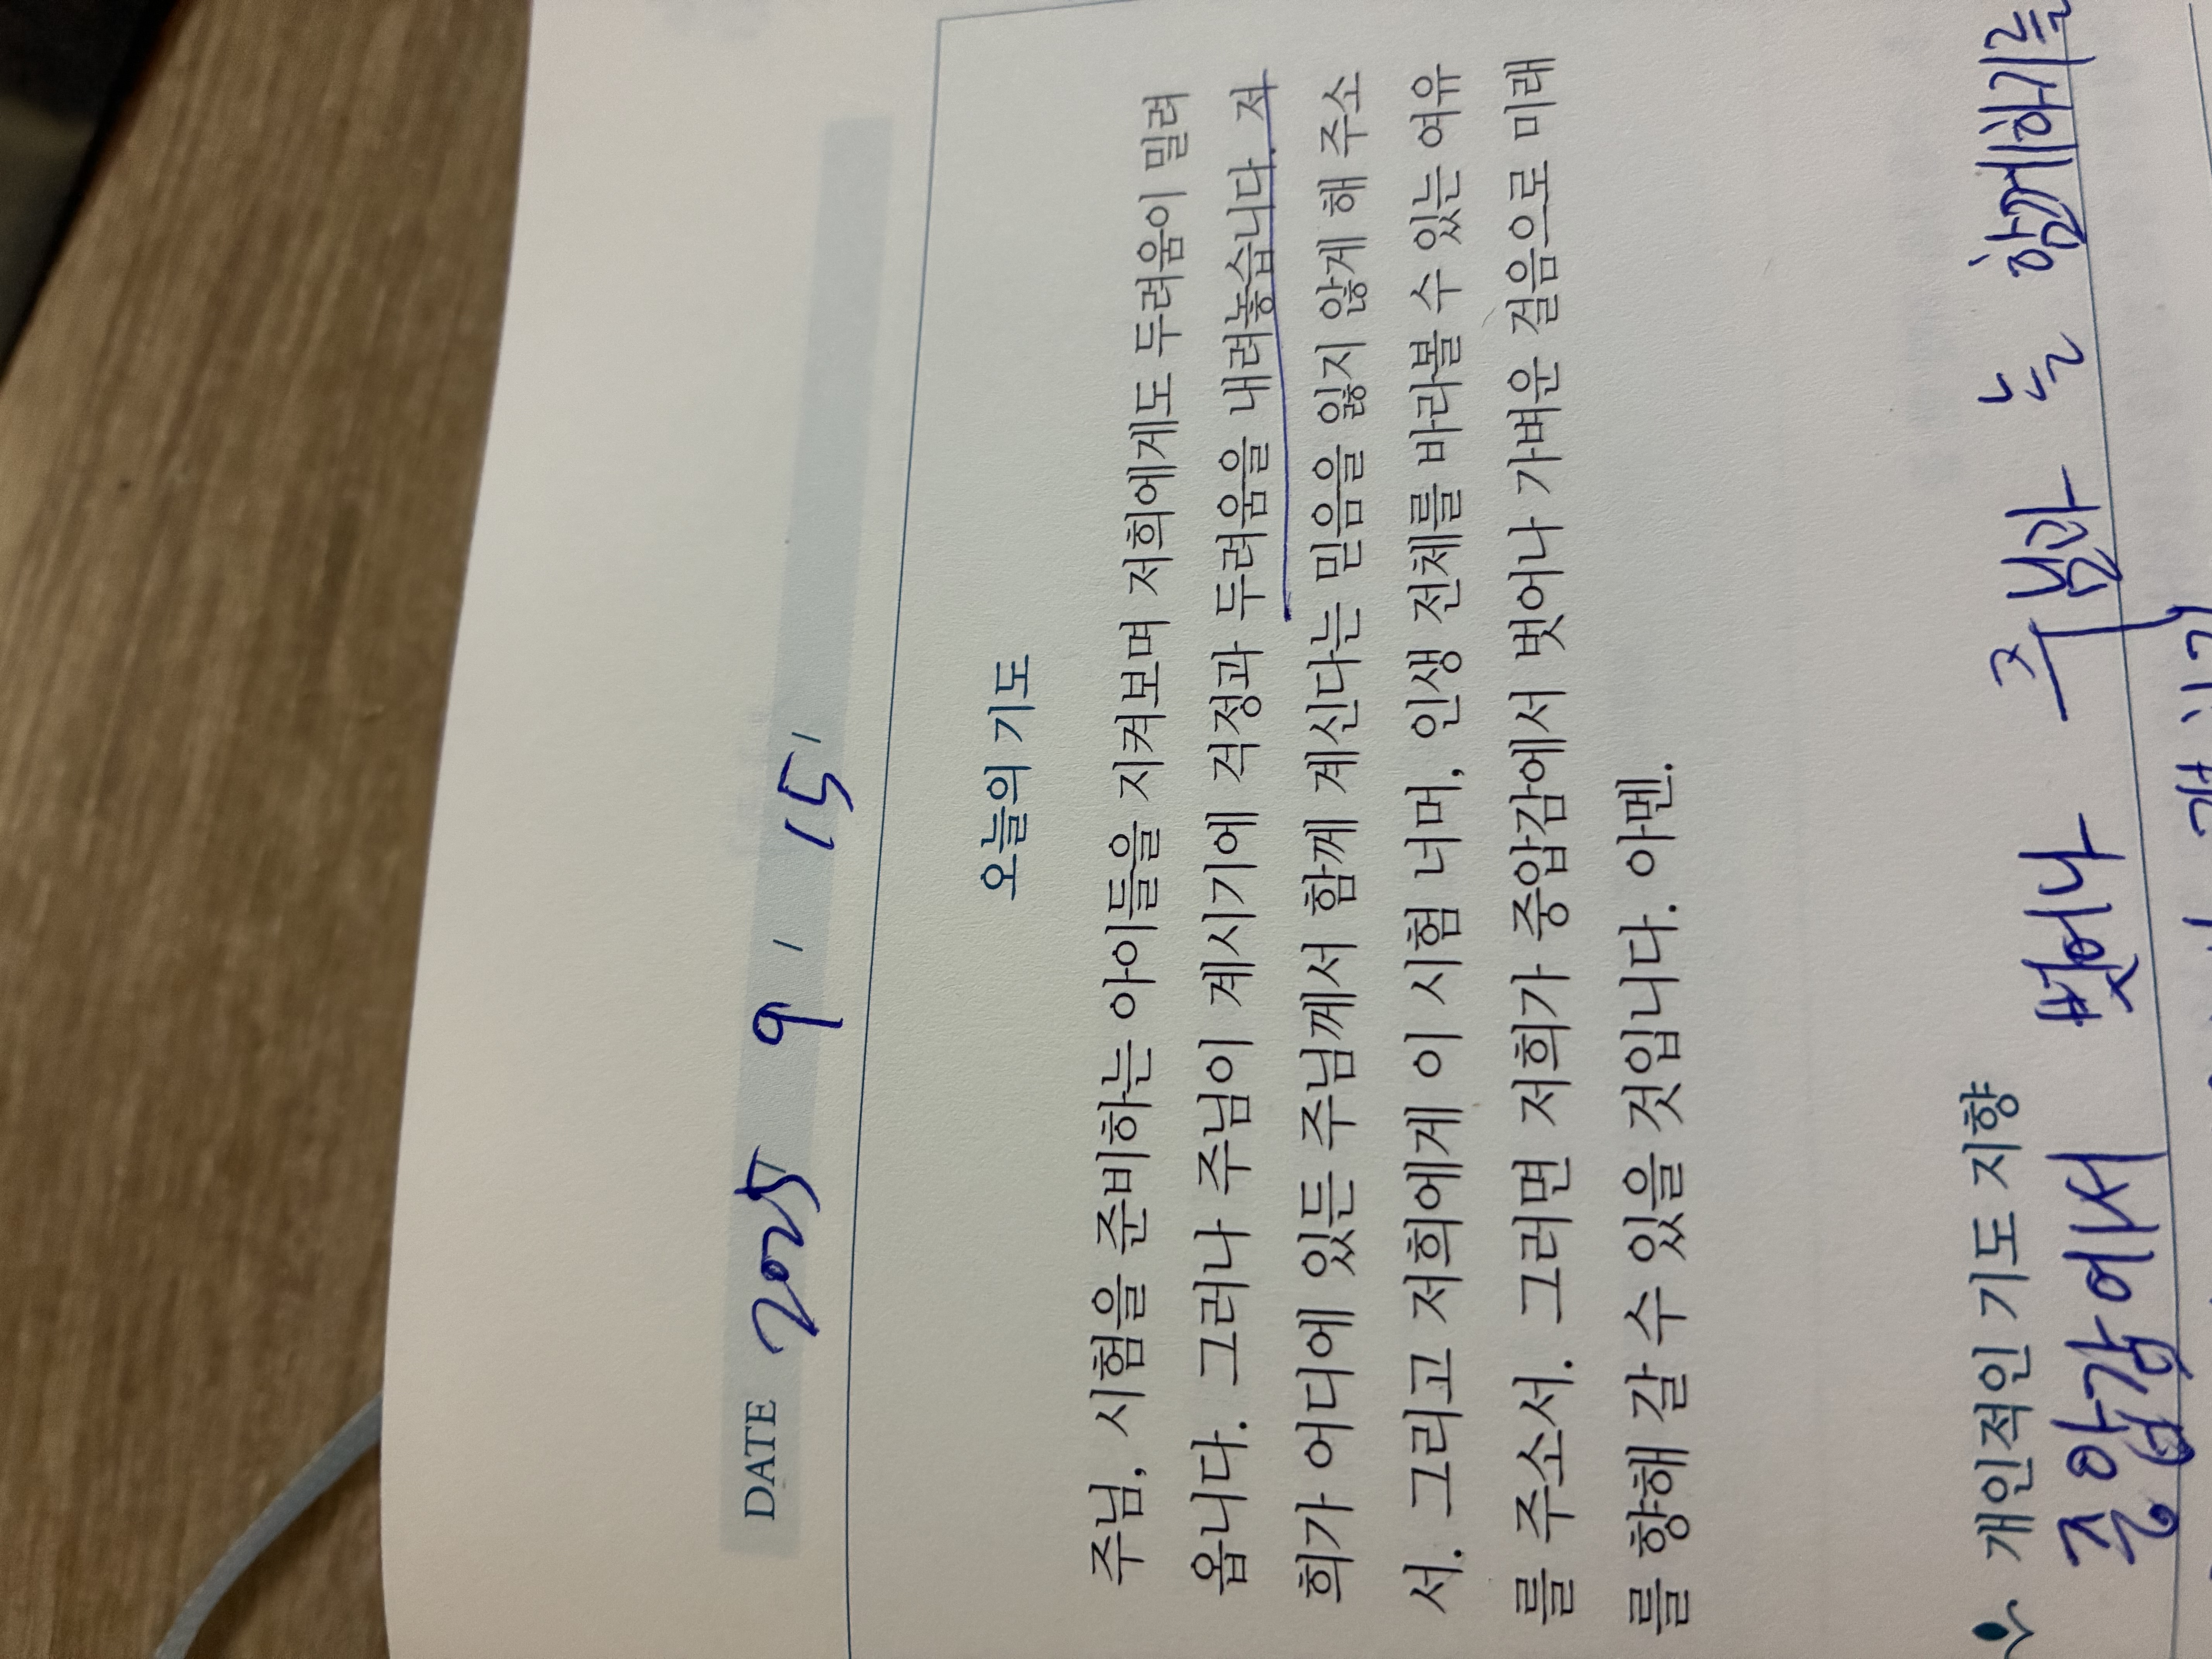 DATE 2025 / 9 / 15 /
오늘의 기도
주님, 시험을 준비하는 아이들을 지켜보며 저희에게도 두려움이 밀려
옵니다. 그러나 주님이 계시기에 걱정과 두려움을 내려놓습니다. 저
희가 어디에 있든 주님께서 함께 계신다는 믿음을 잃지 않게 해 주소
서. 그리고 저희에게 이 시험 너머, 인생 전체를 바라볼 수 있는 여유
를 주소서. 그러면 저희가 중압감에서 벗어나 가벼운 걸음으로 미래
를 향해 갈 수 있을 것입니다. 아멘.
개인적인 기도 지향
중압감에서 벗어나 주님과 늘 함께하기를